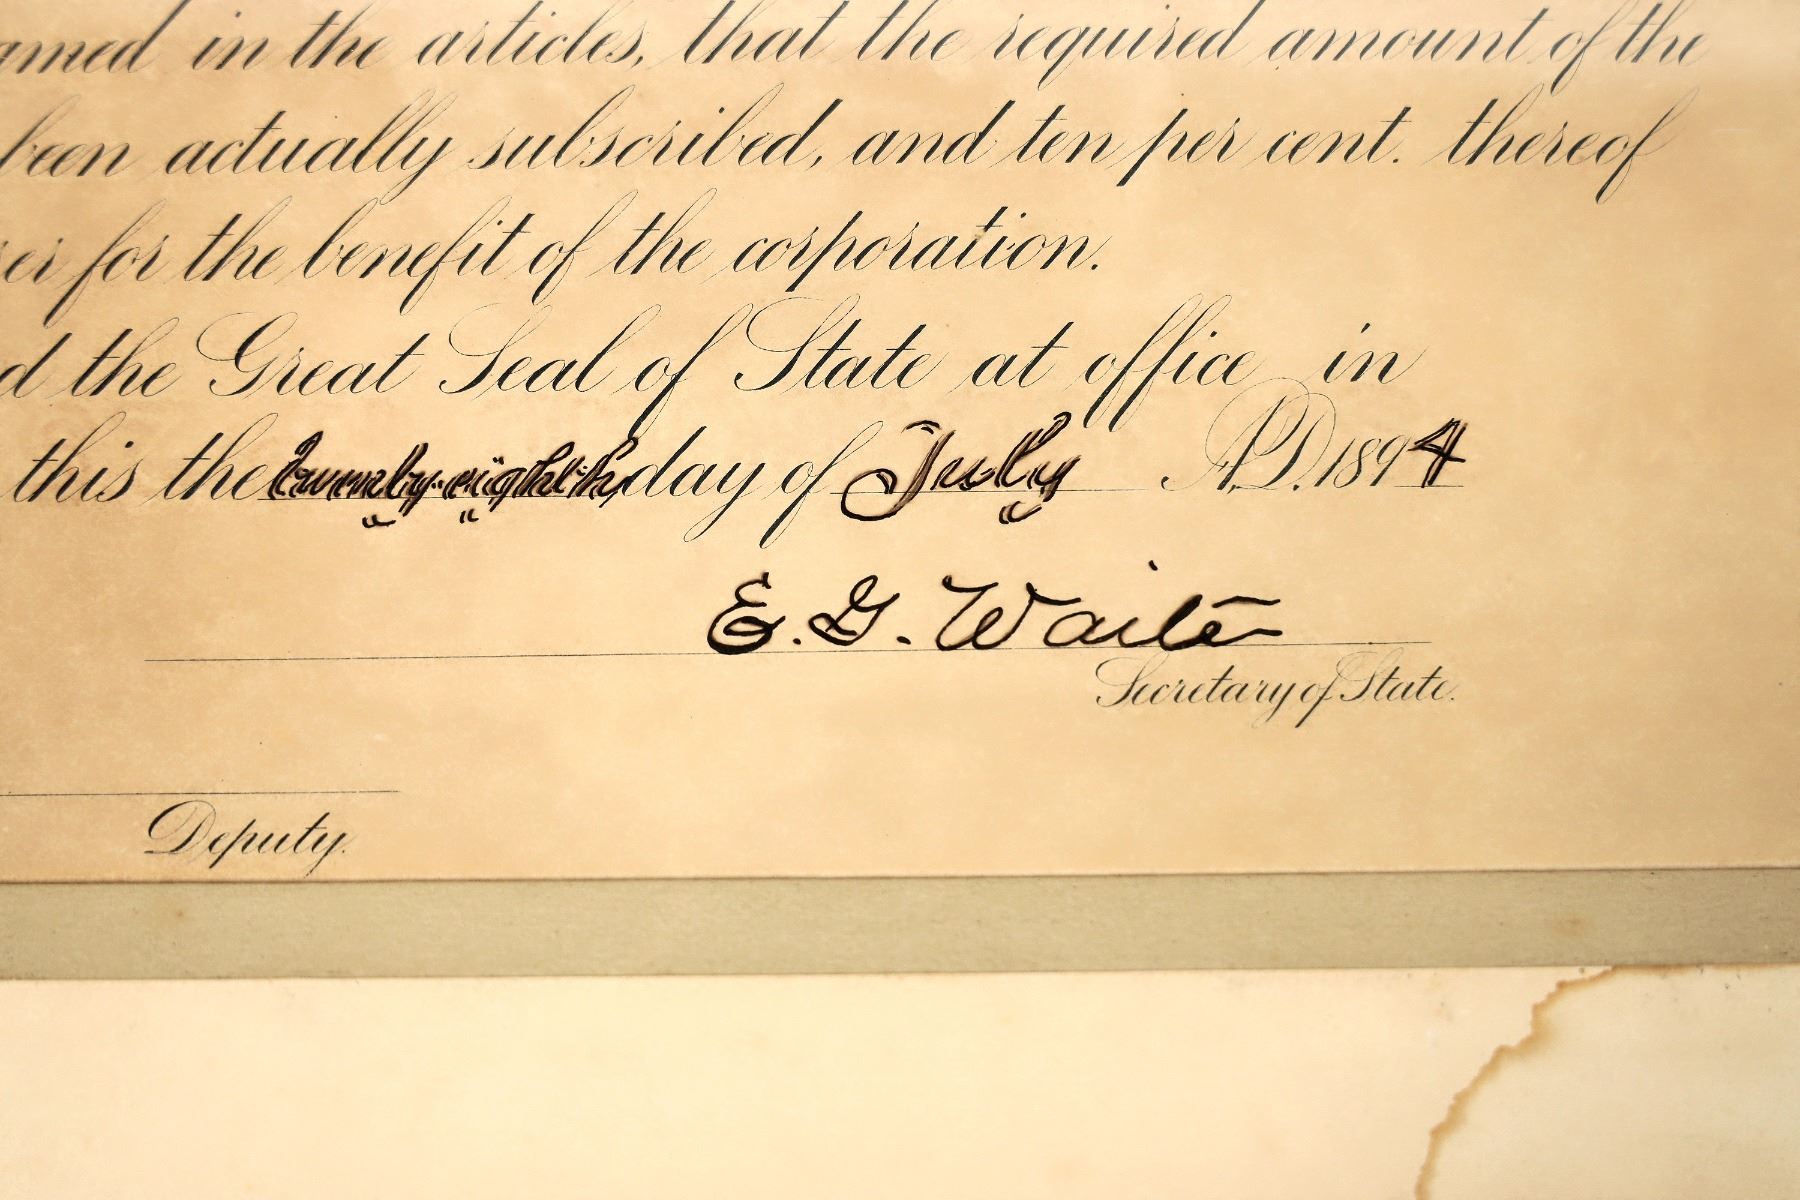 amed in the articles, that the required amount of the
been actually subscribed, and ten per cent. thereof
er for the benefit of the corporation.
d the Great Seal of State at office in
this the twenty-eighth day of July A.D. 1894
E. G. Waite
Secretary of State.
Deputy.